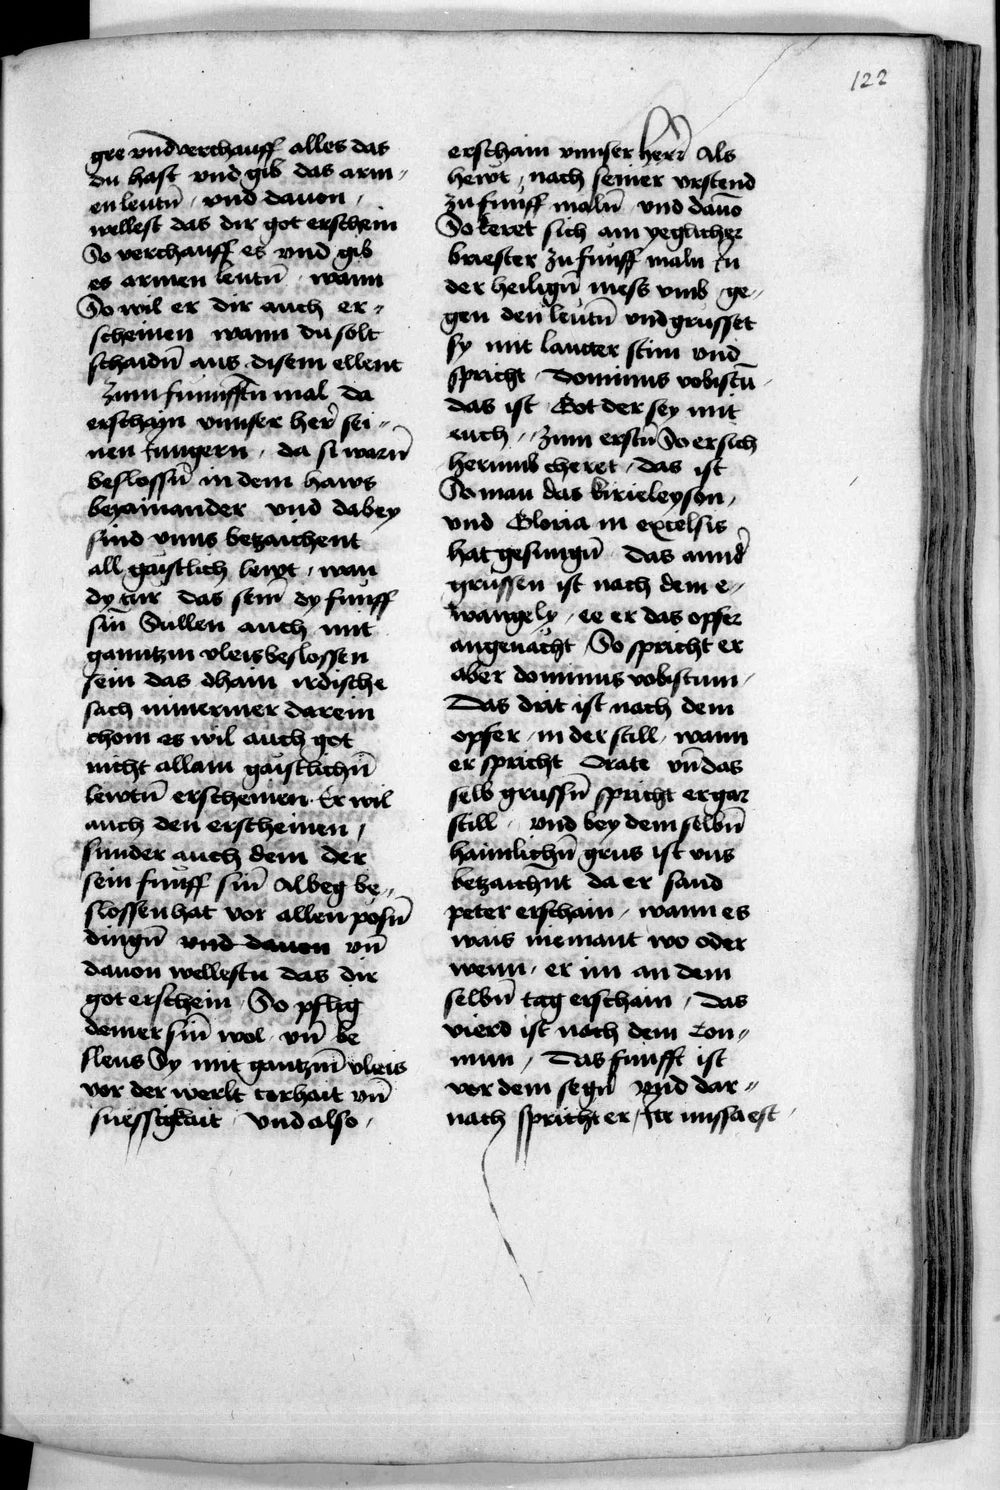 122
gee vnd verchauff alles das
du hast vnd gib das arm„
en leutn̄ · vnd dauon ,
wellest das dir got erschein
So verchauff es vnd gib
es armen leutn̄ · wann
So wil er dir auch er„
scheinen wann du solt
schaidn̄ aus disem ellent
Zum funufftn̄ mal da
erschayn vnnser her̄ sei„
nen Jungern , da si warn̄
beslossn̄ in dem haws
beyainander vnd dabey
sind vnns betzaichent
all gaistlich lewt , wan
dy tür das sein dy fünff
sin̄ Süllen auch mit
ganntzm vleis beslossen
sein das dham irdische
sach nimermer darein
chom es wil auch got
nicht allain gaistlichn̄
lewtn̄ erscheinen · Er wil
auch den erscheinen ,
sunder auch dem der
sein fünff sin̄ Albeg be„
slossen hat vor allen posn̄
dingn̄ vnd dauon vn̄
dauon wellestu das dir
got erschein So pflig
deiner sin̄ wol · vn̄ be
sleus Sy mit gantzm̄ vleis
vor der werlt torhait vn̄
suessigkait · Vnd also ,
erschain vnnser her̄r Als
hewt , nach seiner vrstend
zu funff maln̄ · vnd dauō
So keret sich ain yeglicher
briester Zu funff maln In
der heilign̄ mess vmb ge„
gen den leutn̄ vnd grüsset
sy mit lauter stim vnd
spricht · Dominus vobiscū ,
das ist · Got der sey mit
euch ,, Zum erstn̄ So er sich
herumb cheret , das ist
So man das kirieleyson ,
vnd Gloria in excelsis
hat gesungn̄ Das annd̄
grüssen ist nach dem e„
wangely , ee er das opfer
angenacht So spricht er
aber dominus vobiscum ,
Das drit ist nach dem
opfer , in der still , wann
er spricht Orate vn̄ das
selb grussn̄ spricht er gar
still · vnd bey dem selbn̄
haimlichn̄ grus ist vns
betzaichnt da er sand
peter erschain , wann es
wais niemant wo oder
wenn , er im an dem
selbn̄ tag erschain , Das
vierd ist nach dem Con„
mun , Das funfft ist
vor dem segn̄ Vnd dar„
nach spricht er , Ite missa est ,